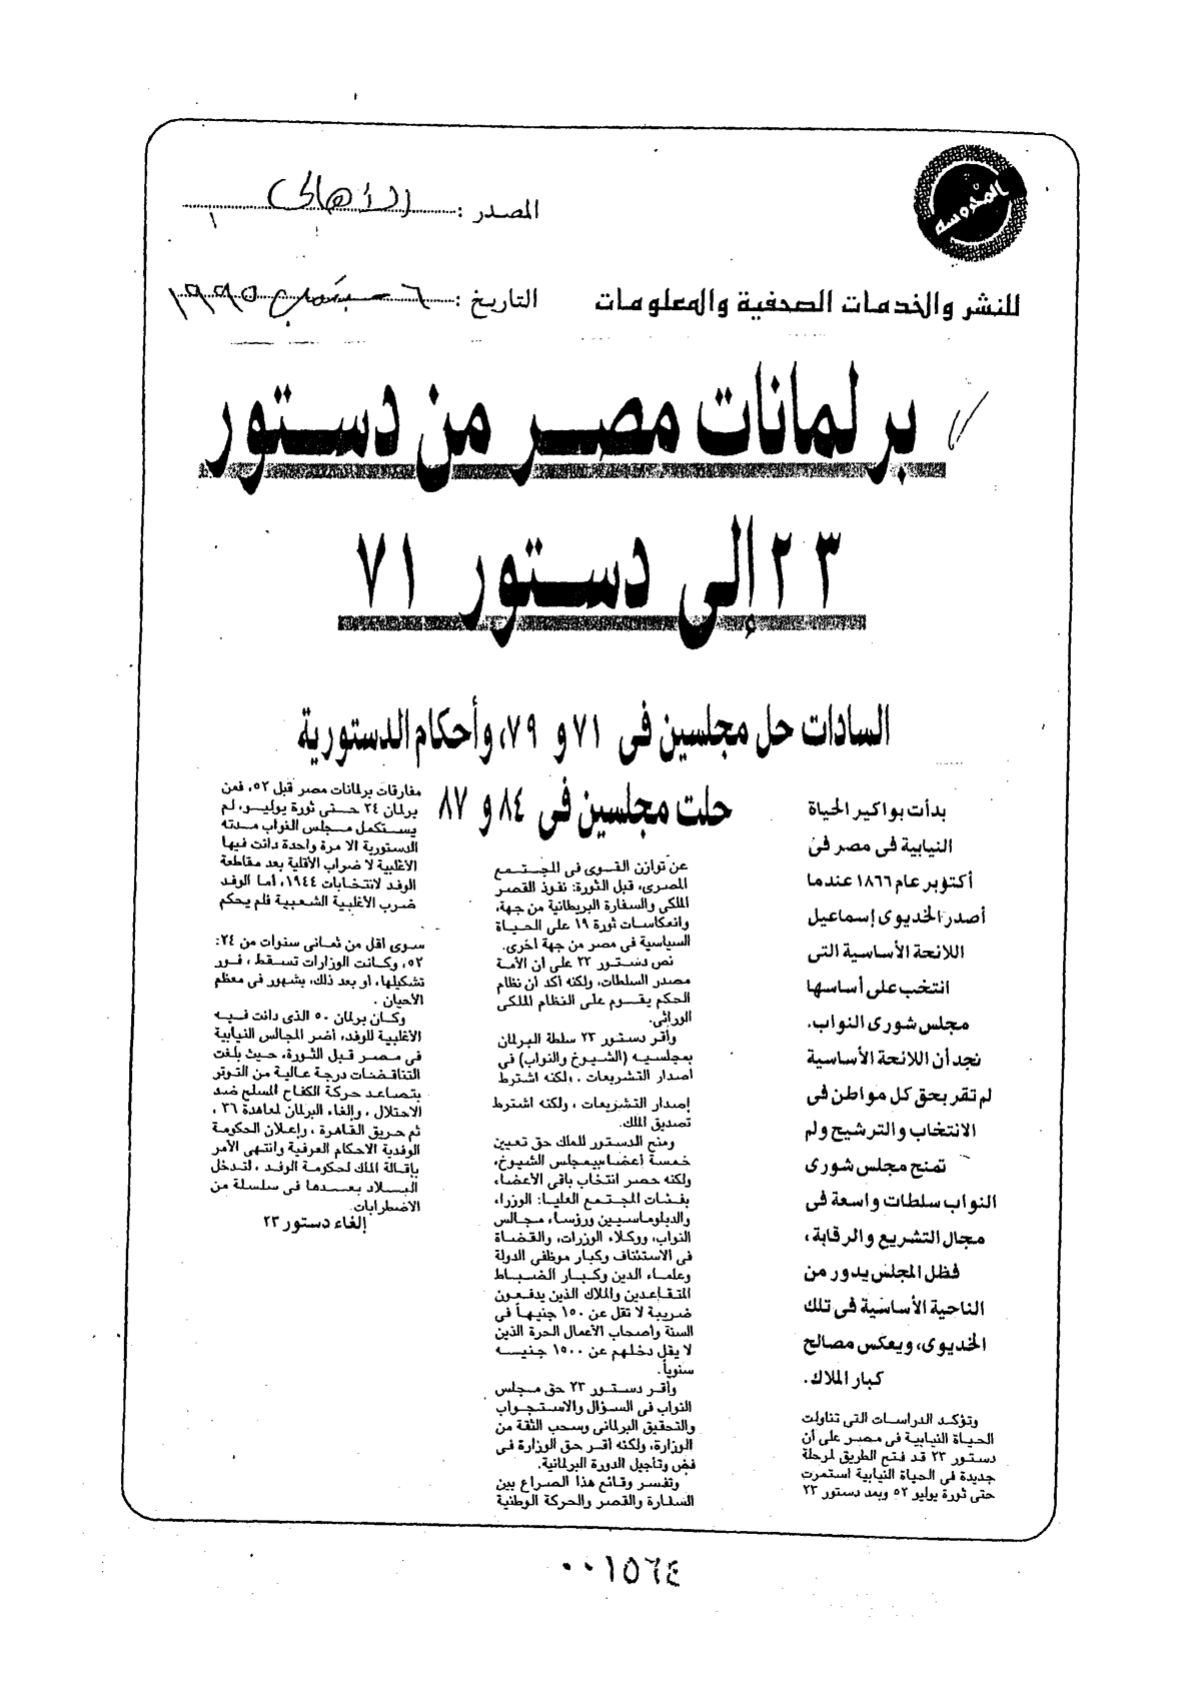 المحروسه
المصدر : الأهالى
للنشر والخدمات الصحفية والمعلومات
التاريخ : ٦ سبتمبر ١٩٩٥
برلمانات مصر من دستور
٢٣ إلى دستور ٧١
السادات حل مجلسين فى ٧١ و ٧٩، وأحكام الدستورية
حلت مجلسين فى ٨٤ و ٨٧
بدأت بواكير الحياة
النيابية فى مصر فى
أكتوبر عام ١٨٦٦ عندما
أصدر الخديوى إسماعيل
اللائحة الأساسية التى
انتخب على أساسها
مجلس شورى النواب.
نجد أن اللائحة الأساسية
لم تقر بحق كل مواطن فى
الانتخاب والترشيح ولم
تمنح مجلس شورى
النواب سلطات واسعة فى
مجال التشريع والرقابة،
فظل المجلس يدور من
الناحية الأساسية فى تلك
الخديوى، ويعكس مصالح
كبار الملاك.
وتؤكد الدراسات التى تناولت
الحياة النيابية فى مصر على أن
دستور ٢٣ قد فتح الطريق لمرحلة
جديدة فى الحياة النيابية استمرت
حتى ثورة يوليو ٥٢ وبعد دستور ٢٣
عن توازن القوى فى المجتمع
المصرى، قبل الثورة: نفوذ القصر
الملكى والسفارة البريطانية من جهة،
وانعكاسات ثورة ١٩ على الحياة
السياسية فى مصر من جهة أخرى.
نص دستور ٢٣ على أن الأمة
مصدر السلطات، ولكنه أكد أن نظام
الحكم يقوم على النظام الملكى
الوراثى.
وأقر دستور ٢٣ سلطة البرلمان
بمجلسيه (الشيوخ والنواب) فى
اصدار التشريعات . ولكنه اشترط
إصدار التشريعات ، ولكنه اشترط
تصديق الملك.
ومنح الدستور للملك حق تعيين
خمسة أعضاء بمجلس الشيوخ،
ولكنه حصر انتخاب باقى الأعضاء
بفئات المجتمع العليا: الوزراء
والدبلوماسيين ورؤساء مجالس
النواب، ووكلاء الوزرات، والقضاة
فى الاستئناف وكبار موظفى الدولة
وعلماء الدين وكبار الضباط
المتقاعدين والملاك الذين يدفعون
ضريبة لا تقل عن ١٥٠ جنيهاً فى
السنة وأصحاب الأعمال الحرة الذين
لا يقل دخلهم عن ١٥٠٠ جنيه
سنوياً.
وأقر دستور ٢٣ حق مجلس
النواب فى السؤال والاستجواب
والتحقيق البرلمانى وسحب الثقة من
الوزارة، ولكنه أقر حق الوزارة فى
فض وتأجيل الدورة البرلمانية.
وتفسر وقائع هذا الصراع بين
السفارة والقصر والحركة الوطنية
مفارقات برلمانات مصر قبل ٥٢، فمن
برلمان ٢٤ حتى ثورة يوليو، لم
يستكمل مجلس النواب مدته
الدستورية الا مرة واحدة دانت فيها
الاغلبية لاضراب الأقلية بعد مقاطعة
الوفد لانتخابات ١٩٤٤، أما الوفد
ضرب الأغلبية الشعبية فلم يحكم
سوى اقل من ثمانى سنوات من ٢٤:
٥٢، وكانت الوزارات تسقط ، فور
تشكيلها، او بعد ذلك، بشهور فى معظم
الأحيان .
وكان برلمان ٥٠ الذى دانت فيه
الأغلبية للوفد، أضر المجالس النيابية
فى مصر قبل الثورة، حيث بلغت
التناقضات درجة عالية من التوتر
بتصاعد حركة الكفاح المسلح ضد
الاحتلال ، وإلغاء البرلمان لمعاهدة ٣٦ ،
ثم حريق القاهرة ، وإعلان الحكومة
الوفدية الاحكام العرفية وانتهى الأمر
بإقالة الملك لحكومة الوفد ، لتدخل
البلاد بعدها فى سلسلة من
الاضطرابات.
إلغاء دستور ٢٣
٠٠١٥٦٤